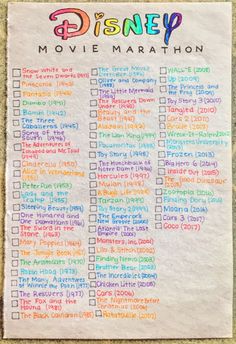 Disney
MOVIE MARATHON
Snow White and
the Seven Dwarfs (1937)
Pinocchio (1940)
Fantasia (1940)
Dumbo (1941)
Bambi (1942)
The Three
Caballeros (1945)
Song of the
South (1946)
The Adventures of
Ichabod and Mr. Toad
(1949)
Cinderella (1950)
Alice in Wonderland
(1951)
Peter Pan (1953)
Lady and the
Tramp (1955)
Sleeping Beauty (1959)
One Hundred and
One Dalmatians (1961)
The Sword in the
Stone (1963)
Mary Poppins (1964)
The Jungle Book (1967)
The Aristocats (1970)
Robin Hood (1973)
The Many Adventures
of Winnie the Pooh (1977)
The Rescuers (1977)
The Fox and the
Hound (1981)
The Black Cauldron (1985)
The Great Mouse
Detective (1986)
Oliver and Company
(1988)
The Little Mermaid
(1989)
The Rescuers Down
Under (1990)
Beauty and the
Beast (1991)
Aladdin (1992)
The Lion King (1994)
Pocahontas (1995)
Toy Story (1995)
The Hunchback of
Notre Dame (1996)
Hercules (1997)
Mulan (1998)
A Bug's Life (1998)
Tarzan (1999)
Toy Story 2 (1999)
The Emperor's
New Groove (2000)
Atlantis: The Lost
Empire (2001)
Monsters, Inc. (2001)
Lilo & Stitch (2002)
Finding Nemo (2003)
Brother Bear (2003)
The Incredibles (2004)
Chicken Little (2005)
Cars (2006)
The Nightmare Before
Christmas
Ratatouille (2007)
WALL-E (2008)
Up (2009)
The Princess and
the Frog (2009)
Toy Story 3 (2010)
Tangled (2010)
Cars 2 (2011)
Brave (2012)
Wreck-It-Ralph (2012)
Monsters University
(2013)
Frozen (2013)
Big Hero 6 (2014)
Inside Out (2015)
The Good Dinosaur
(2015)
Zootopia (2016)
Finding Dory (2016)
Moana (2016)
Cars 3 (2017)
Coco (2017)